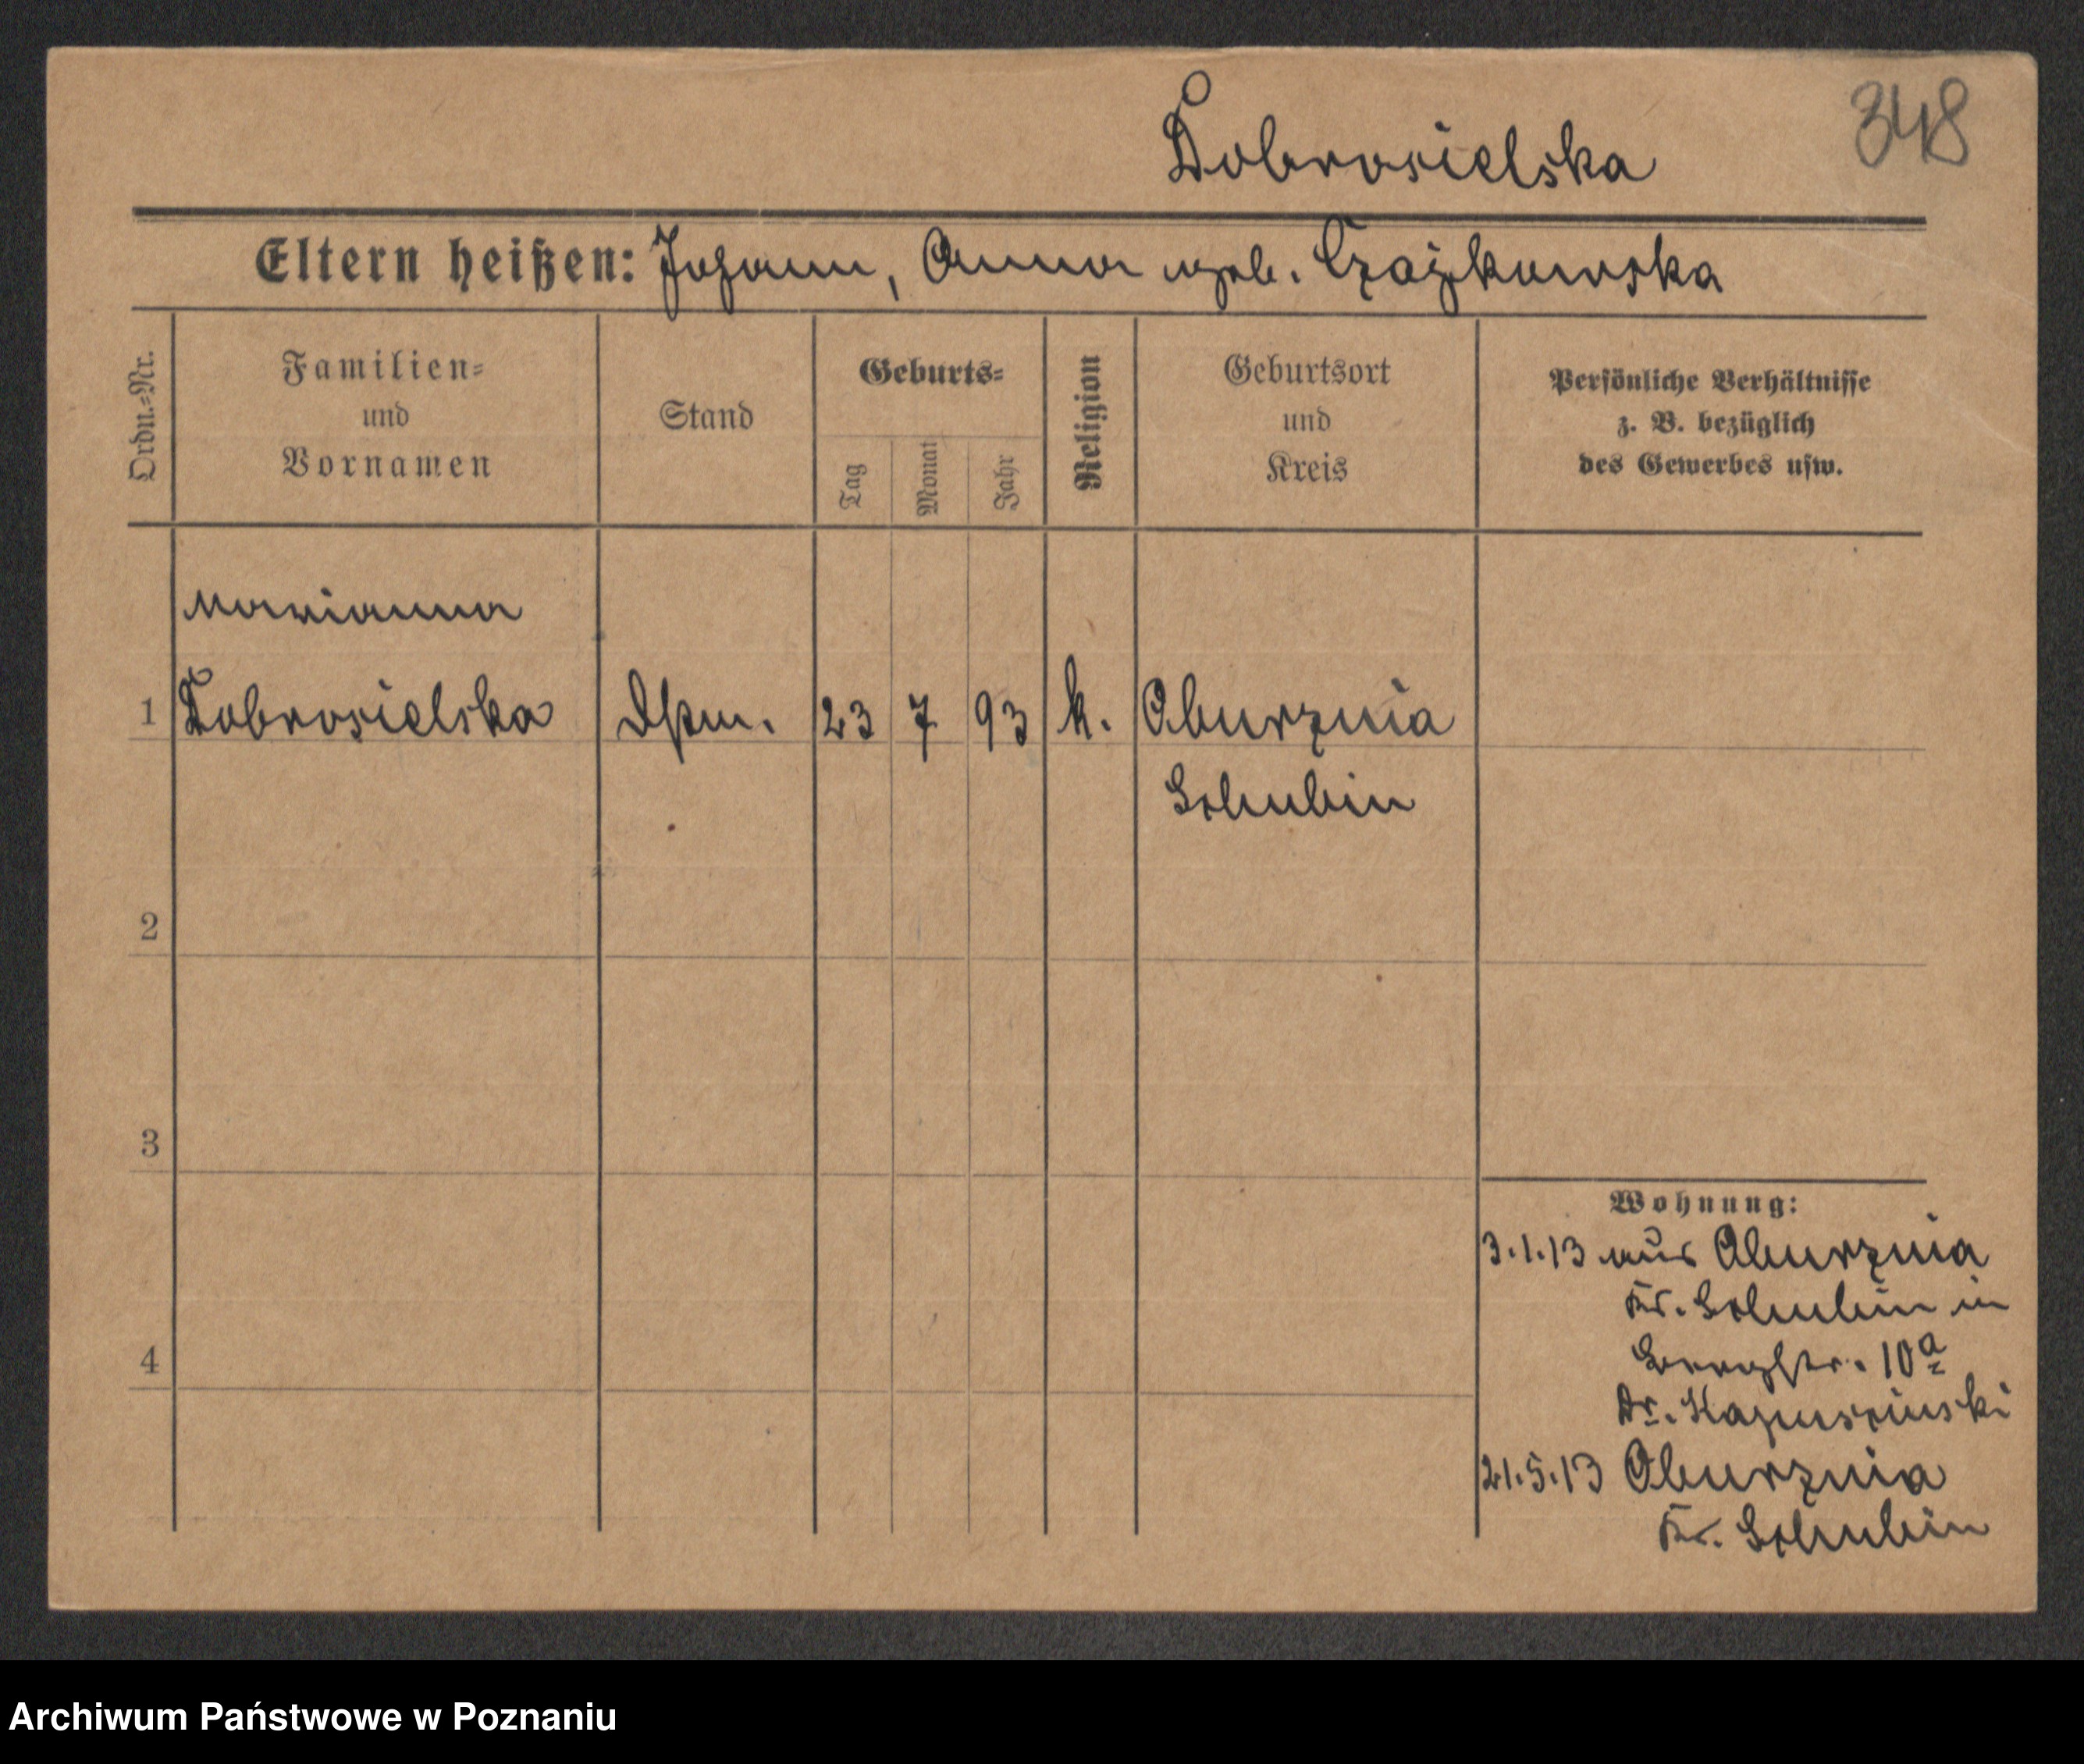 348
Dobrosielska
Eltern heißen: Johann, Anna geb. Czajkowska
Ordn.=Nr.
Familien=
und
Vornamen
Stand
Geburts=
Tag
Monat
Jahr
Religion
Geburtsort
und
Kreis
Persönliche Verhältnisse
z. B. bezüglich
des Gewerbes usw.
Marianna
1 Dobrosielska Dstm. 23 7 93 k. Oburznia
Schubin
2
3
4
Wohnung:
3.1.13 aus Oburznia
Kr. Schubin in
10a
Dr. Kapuscinski
21.5.13 Oburznia
Kr. Schubin
Archiwum Państwowe w Poznaniu